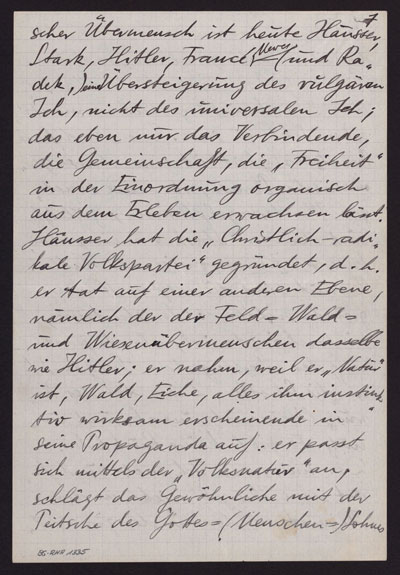 7
scher Übermensch ist heute Häusser,
Stark, Hitler, France (News) und Ra-
dek, eine Übersteigerung des vulgären
Ich, nicht des universalen Ich;
das eben nur das Verbindende,
die Gemeinschaft, die „Freiheit"
in der Einordnung organisch
aus dem Erleben erwachsen lässt.
Häusser hat die „Christlich-radi-
kale Volkspartei" gegründet, d. h.
er tat auf einer anderen Ebene,
nämlich der der Feld- Wald-
und Wiesenübermenschen dasselbe
wie Hitler; er nahm, weil er „Natur"
ist, Wald, Eiche, alles ihm instink-
tiv wirksam erscheinende in
seine Propaganda auf: er passt
sich mittels der „Volksnatur" an,
schlägt das Gewöhnliche mit der
Peitsche des Gottes-(Menschen-)Sohnes
BG-RHA 1335